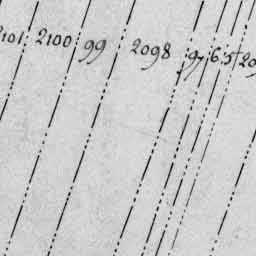 2101 2100 99 2098 97 6 5 209